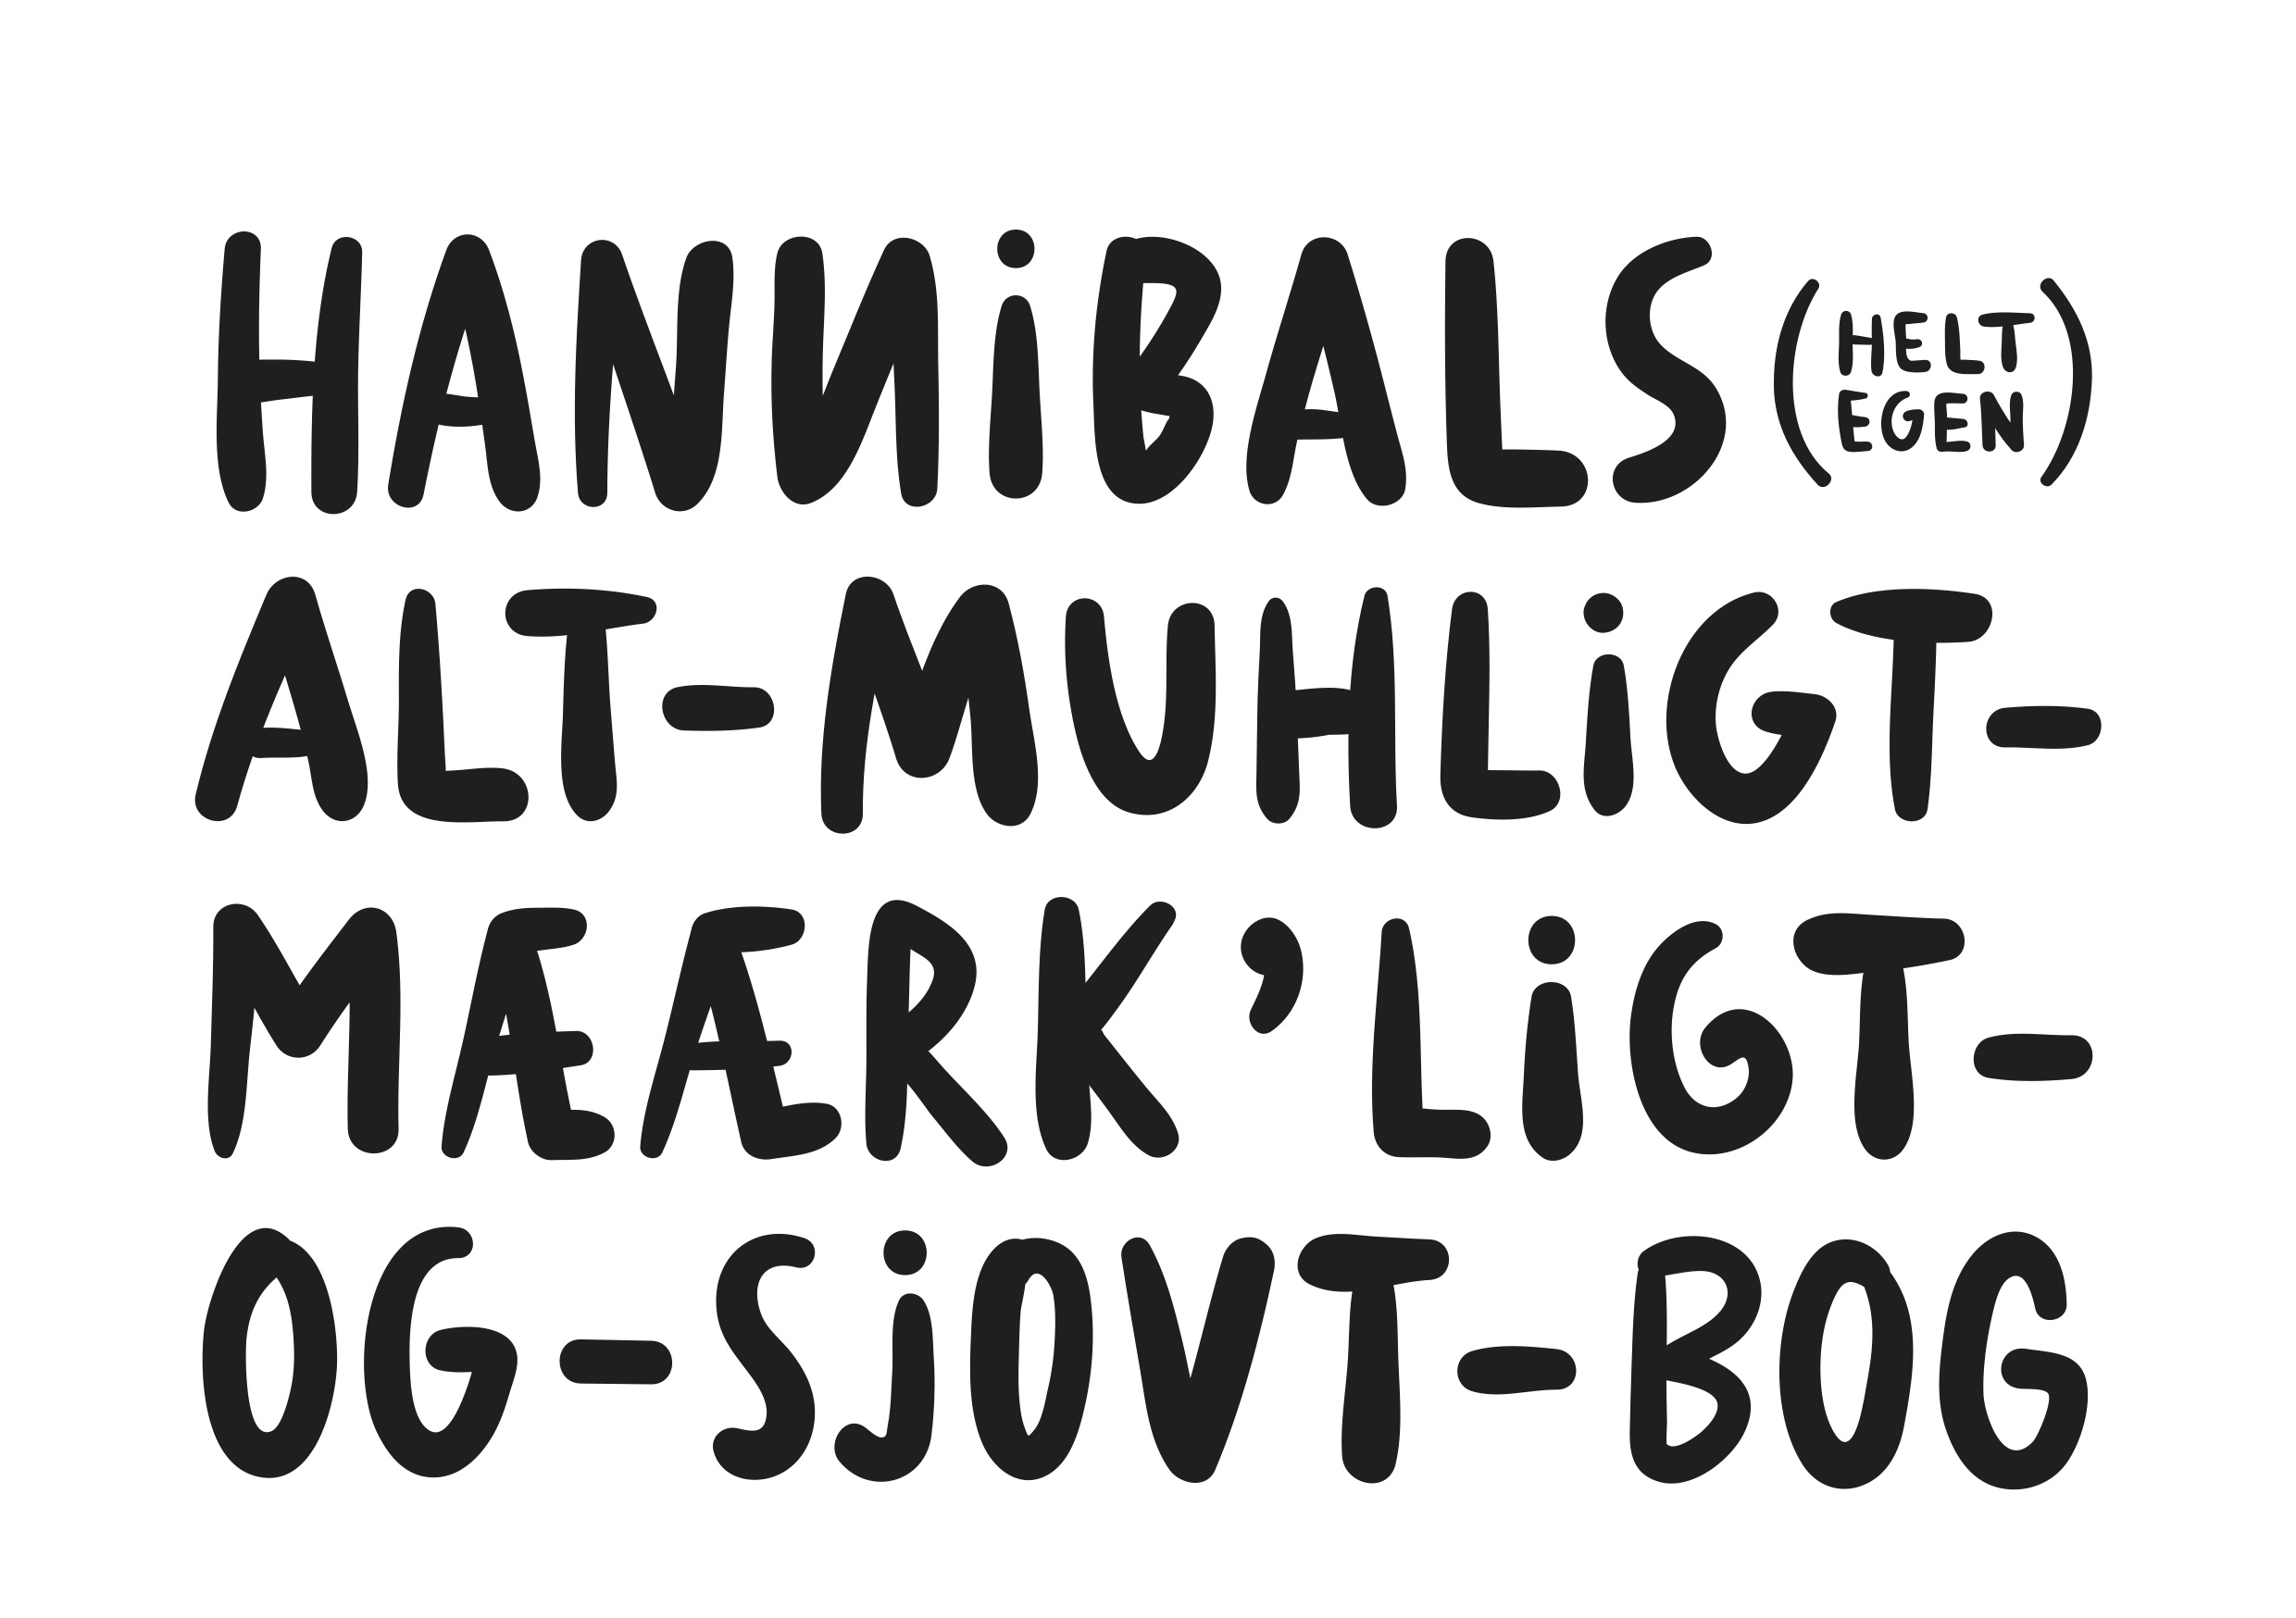 HANNiBALS (HELT EGEN)
ALT-MULiGT-
MÆÆRK'LiGT-
OG-SjOVT-BOG